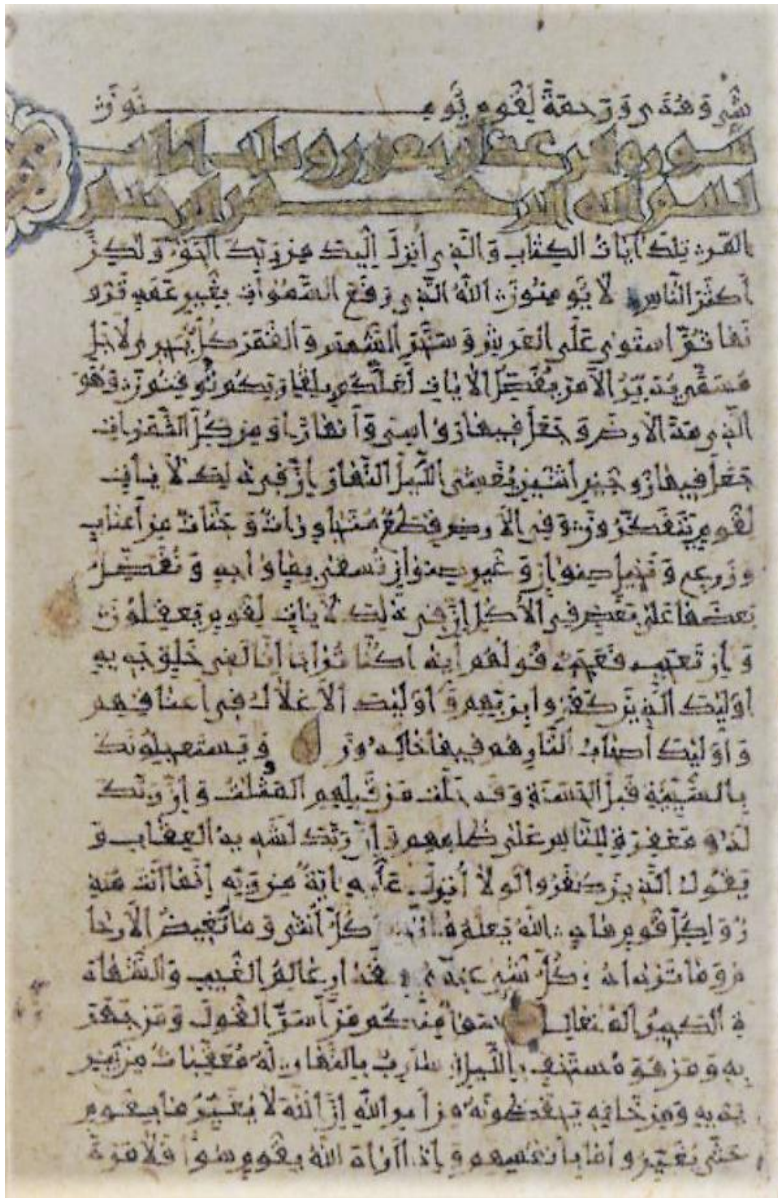 شيء وهدى ورحمة لقوم يؤمنون
سورة الرعد أربعون وثلث آيات
بسم الله الرحمن الرحيم
المر تلك آيات الكتاب والذي أنزل إليك من ربك الحق ولكن
أكثر الناس لا يؤمنون الله الذي رفع السموات بغير عمد ترو
نها ثم استوى على العرش وسخر الشمس والقمر كل يجري لأجل
مسمى يدبر الأمر يفصل الآيات لعلكم بلقاء ربكم توقنون وهو
الذي مد الأرض وجعل فيها رواسي وأنهارا ومن كل الثمرات
جعل فيها زوجين اثنين يغشي الليل النهار إن في ذلك لآيات
لقوم يتفكرون وفي الأرض قطع متجاورات وجنات من أعناب
وزرع ونخيل صنوان وغير صنوان تسقى بماء واحد ونفضل
بعضها على بعض في الأكل إن في ذلك لآيات لقوم يعقلون
وإن تعجب فعجب قولهم أئذا كنا ترابا إنا لفي خلق جديد
أولئك الذين كفروا بربهم وأولئك الأغلال في أعناقهم
وأولئك أصحاب النار هم فيها خالدون ويستعجلونك
بالسيئة قبل الحسنة وقد خلت من قبلهم المثلات وإن ربك
لذو مغفرة للناس على ظلمهم وإن ربك لشديد العقاب و
يقول الذين كفروا لولا أنزل عليه آية من ربه إنما أنت منذ
ر ولكل قوم هاد الله يعلم ما تحمل كل أنثى وما تغيض الأرحا
م وما تزداد وكل شيء عنده بمقدار عالم الغيب والشهاد
ة الكبير المتعال سواء منكم من أسر القول ومن جهر
به ومن هو مستخف بالليل وسارب بالنهار له معقبات من بين
يديه ومن خلفه يحفظونه من أمر الله إن الله لا يغير ما بقوم
حتى يغيروا ما بأنفسهم وإذا أراد الله بقوم سوءا فلا مرد